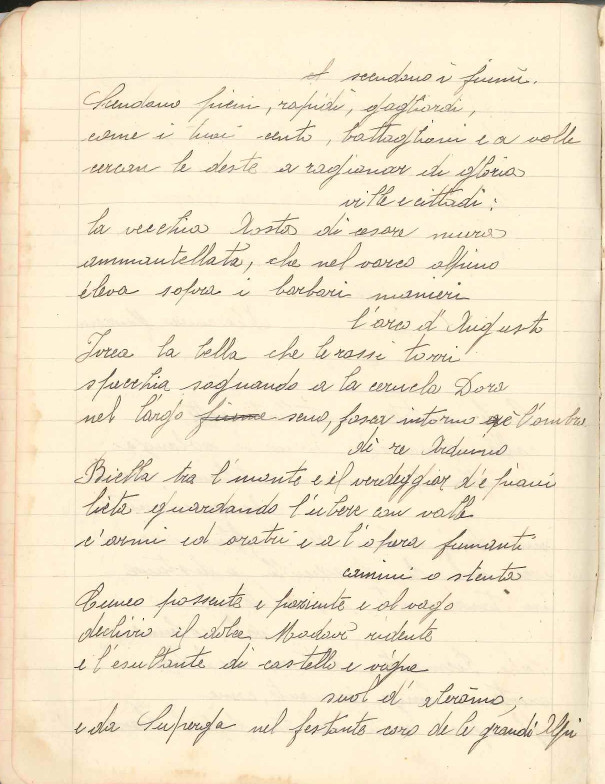 scendono i fiumi.
Scendono pieni, rapidi, gagliardi,
come i tuoi cento, battaglioni e a valle
cercan le deste a ragionar di gloria
ville e cittadi:
la vecchia Aosta di cesare mura
ammantellata, che nel varco alpino
éleva sopra i barbari manieri
l'arco d'Augusto
Ivrea la bella che le rossi torri
specchia sognando a la cerula Dora
nel largo fiume seno, fosca intorno è l'ombra
di re Arduino
Biella tra l'monte e il verdeggiar d'e piani
lieta guardando l'ubere con valle
c'armi ed aratri e a l'opera fumanti
camini o stenta
Cuneo possente e paziente e al vago
declivio il dolce Modovì ridente
e l'esultante di castella e vigne
suol d' Aleramo;
e da Superga nel festante coro de le grandi Alpi